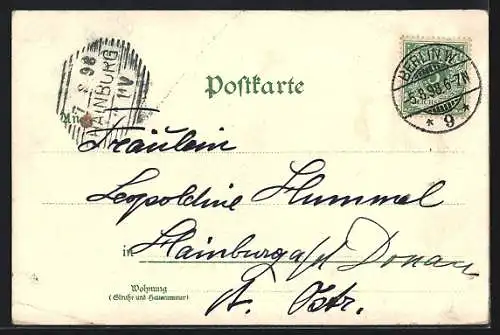 7 8 98
HAINBURG
11V
Postkarte
BERLIN W.
5.8.98.6-7N
* 9 *
An
Fräulein
Leopoldine Hummel
in
Hainburg a/d Donau
Wohnung
(Straße und Hausnummer)
N. Östr.